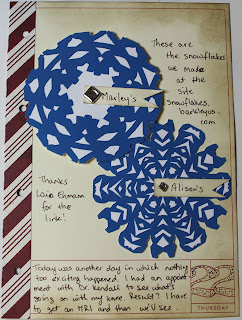 These are
the snowflakes
we made
at the
site
snowflakes.
barkleyus.
com
Marley's
Alison's
Thanks
Lain Ehmann
for the
link!
Today was another day in which nothing
too exciting happened. I had an appoint
ment with Dr. Kendall to see what's
going on with my knee. Result? I have
to get an MRI and then we'll see.
22
THURSDAY